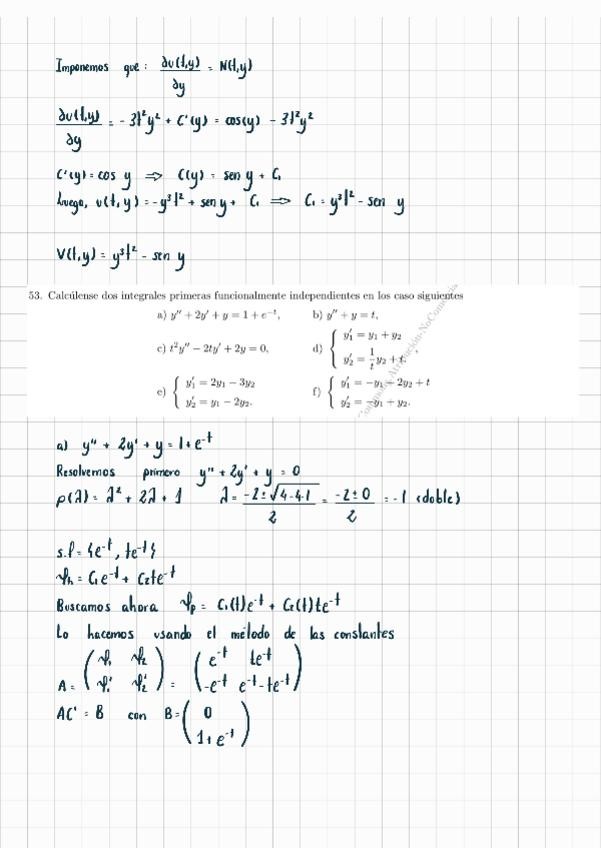 Imponemos que: ∂u(t,y)/∂y = N(t,y)
∂u(t,y)/∂y = -3t²y² + C'(y) = cos(y) - 3t²y²
C'(y) = cos y ⇒ C(y) = sen y + C₁
Luego, u(t,y) = -y³t² + sen y + C₁ ⇒ C₁ = y³t² - sen y
V(t,y) = y³t² - sen y
53. Calcúlense dos integrales primeras funcionalmente independientes en los caso siguientes
a) y'' + 2y' + y = 1 + e⁻ᵗ, b) y'' + y = t,
c) t²y'' - 2ty' + 2y = 0, d) { y₁' = y₁ + y₂
y₂' = 1/t y₂ + t ,
e) { y₁' = 2y₁ - 3y₂ f) { y₁' = -y₁ - 2y₂ + t
y₂' = y₁ - 2y₂. y₂' = -y₁ + y₂.
a) y'' + 2y' + y = 1+e⁻ᵗ
Resolvemos primero y'' + 2y' + y = 0
p(λ) = λ² + 2λ + 1 λ = (-2 ± √(4-4·1))/2 = (-2 ± 0)/2 = -1 (doble)
s.f = {e⁻ᵗ, te⁻ᵗ}
ψh = C₁e⁻ᵗ + C₂te⁻ᵗ
Buscamos ahora ψp = C₁(t)e⁻ᵗ + C₂(t)te⁻ᵗ
Lo hacemos usando el método de las constantes
A = (ψ₁ ψ₂ ; ψ₁' ψ₂') = (e⁻ᵗ te⁻ᵗ ; -e⁻ᵗ e⁻ᵗ-te⁻ᵗ)
AC' = B con B = (0 ; 1+e⁻ᵗ)